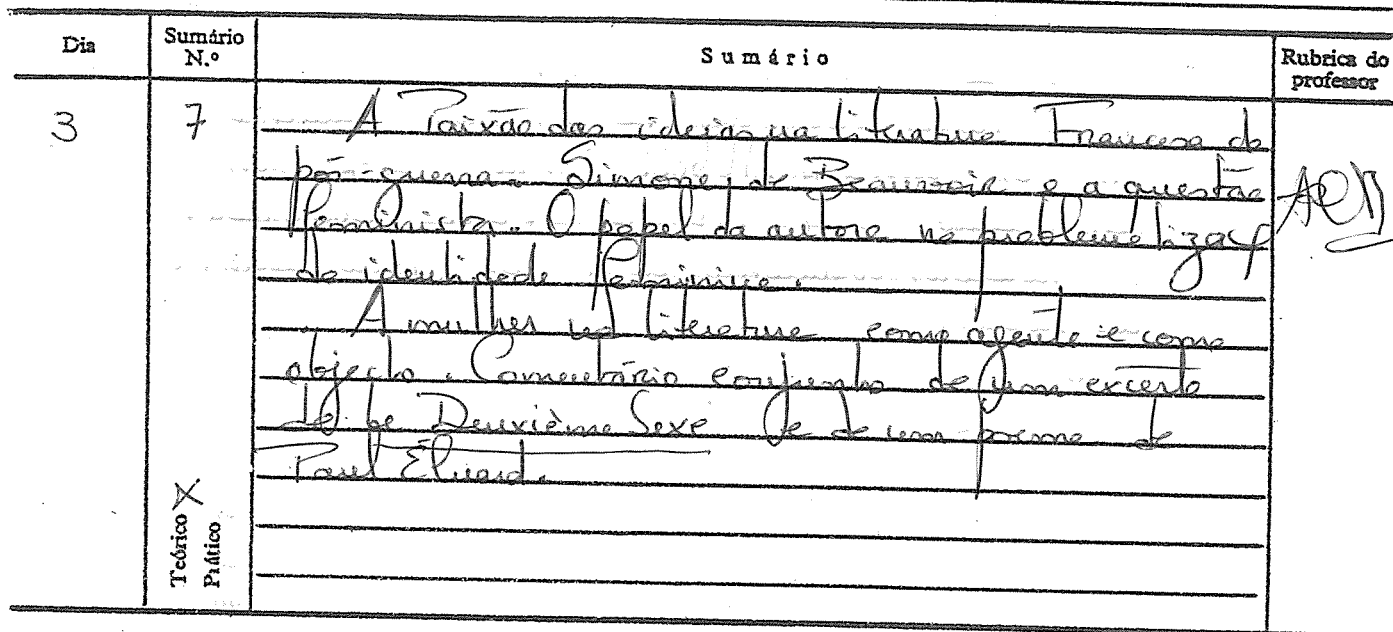 Dia
Sumário N.º
Sumário
Rubrica do professor
3
7
A Paixão das ideias na literatura Francesa do
pós-guerra. Simone de Beauvoir e a questão
feminista. O papel da autora na problematizaç
da identidade feminina.
A mulher na literatura como agente e como
objecto. Comentário conjunto de um excerto
do Le Deuxième Sexe e de um poema de
Paul Éluard.
Teórico X
Prático